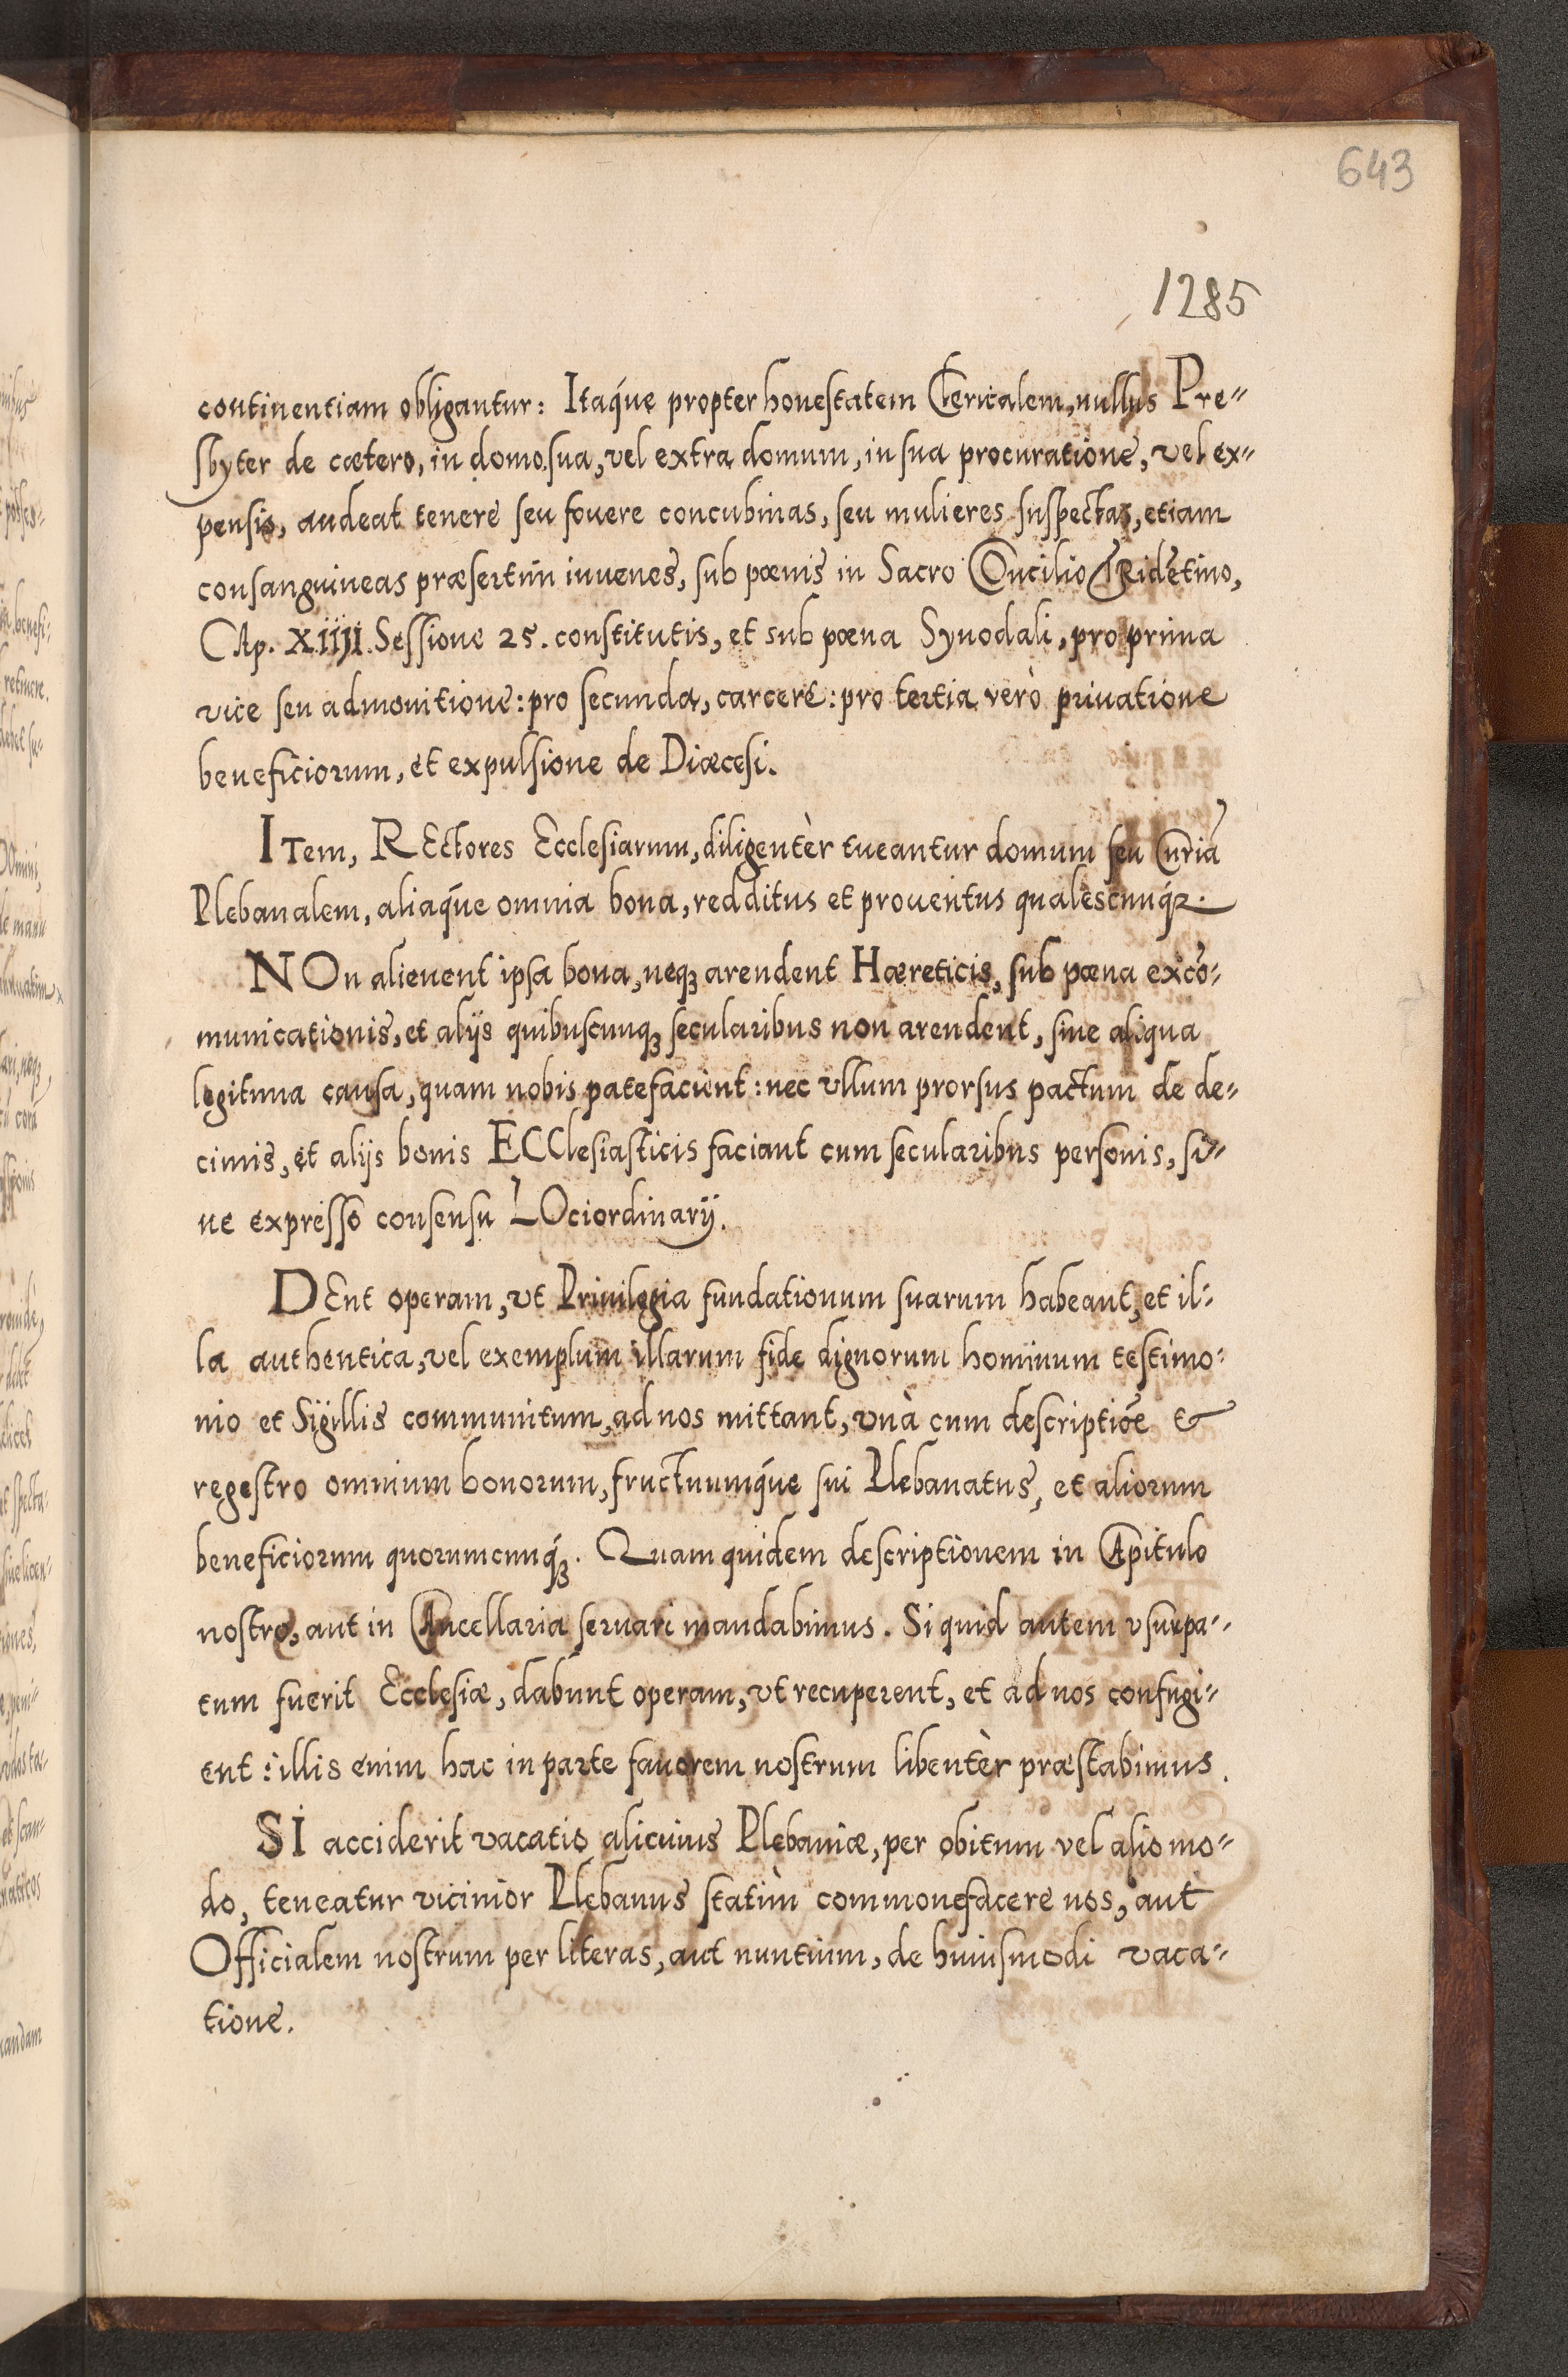 643
1285
continentiam obligantur: Itaq́ue propter honestatem Clericalem, nullus Pre-
sbyter de cætero, in domo sua, vel extra domum, in sua procuratione, vel ex-
pensis, audeat tenere seu fouere concubinas, seu mulieres suspectas, etiam
consanguineas præsertim iuuenes, sub pœnis in Sacro COncilio TRidẽtino,
CAp. XIIIJ. Sessione 25. constitutis, et sub pœna Synodali, pro prima
vice seu admonitione: pro secunda, carcere: pro tertia verò priuatione
beneficiorum, et expulsione de Diœcesi.
ITem, REctores Ecclesiarum, diligentèr tueantur domum seu Curiã
Plebanalem, aliaq́ue omnia bona, redditus et prouentus qualescunq́ꝫ.
NOn alienent ipsa bona, neqꝫ arendent Hæreticis, sub pœna excõ-
municationis, et alijs quibuscunqꝫ secularibus non arendent, sine aliqua
legitima causa, quam nobis patefacient: nec vllum prorsus pactum de de-
cimis, et alijs bonis ECClesiasticis faciant cum secularibus personis, si-
ne expresso consensu LOciordinarij.
DEnt operam, vt Priuilegia fundationum suarum habeant, et il-
la authentica, vel exemplum illarum fide dignorum hominum testimo-
nio et Sigillis communitum, ad nos mittant, vnà cum descriptiõe &
regestro omnium bonorum, fructuumq́ue sui Plebanatus, et aliorum
beneficiorum quorumcunq́ꝫ. Quam quidem descriptionem in CApitulo
nostro, aut in CAncellaria seruari mandabimus. Si quid autem vsurpa-
tum fuerit Ecclesiæ, dabunt operam, vt recuperent, et ad nos confugi-
ent: illis enim hac in parte fauorem nostrum libentèr præstabimus.
SI acciderit vacatio alicuius Plebaniæ, per obitum vel alio mo-
do, teneatur vicinior Plebanus statim commonefacere nos, aut
Officialem nostrum per literas, aut nuntium, de huiusmodi vaca-
tione.